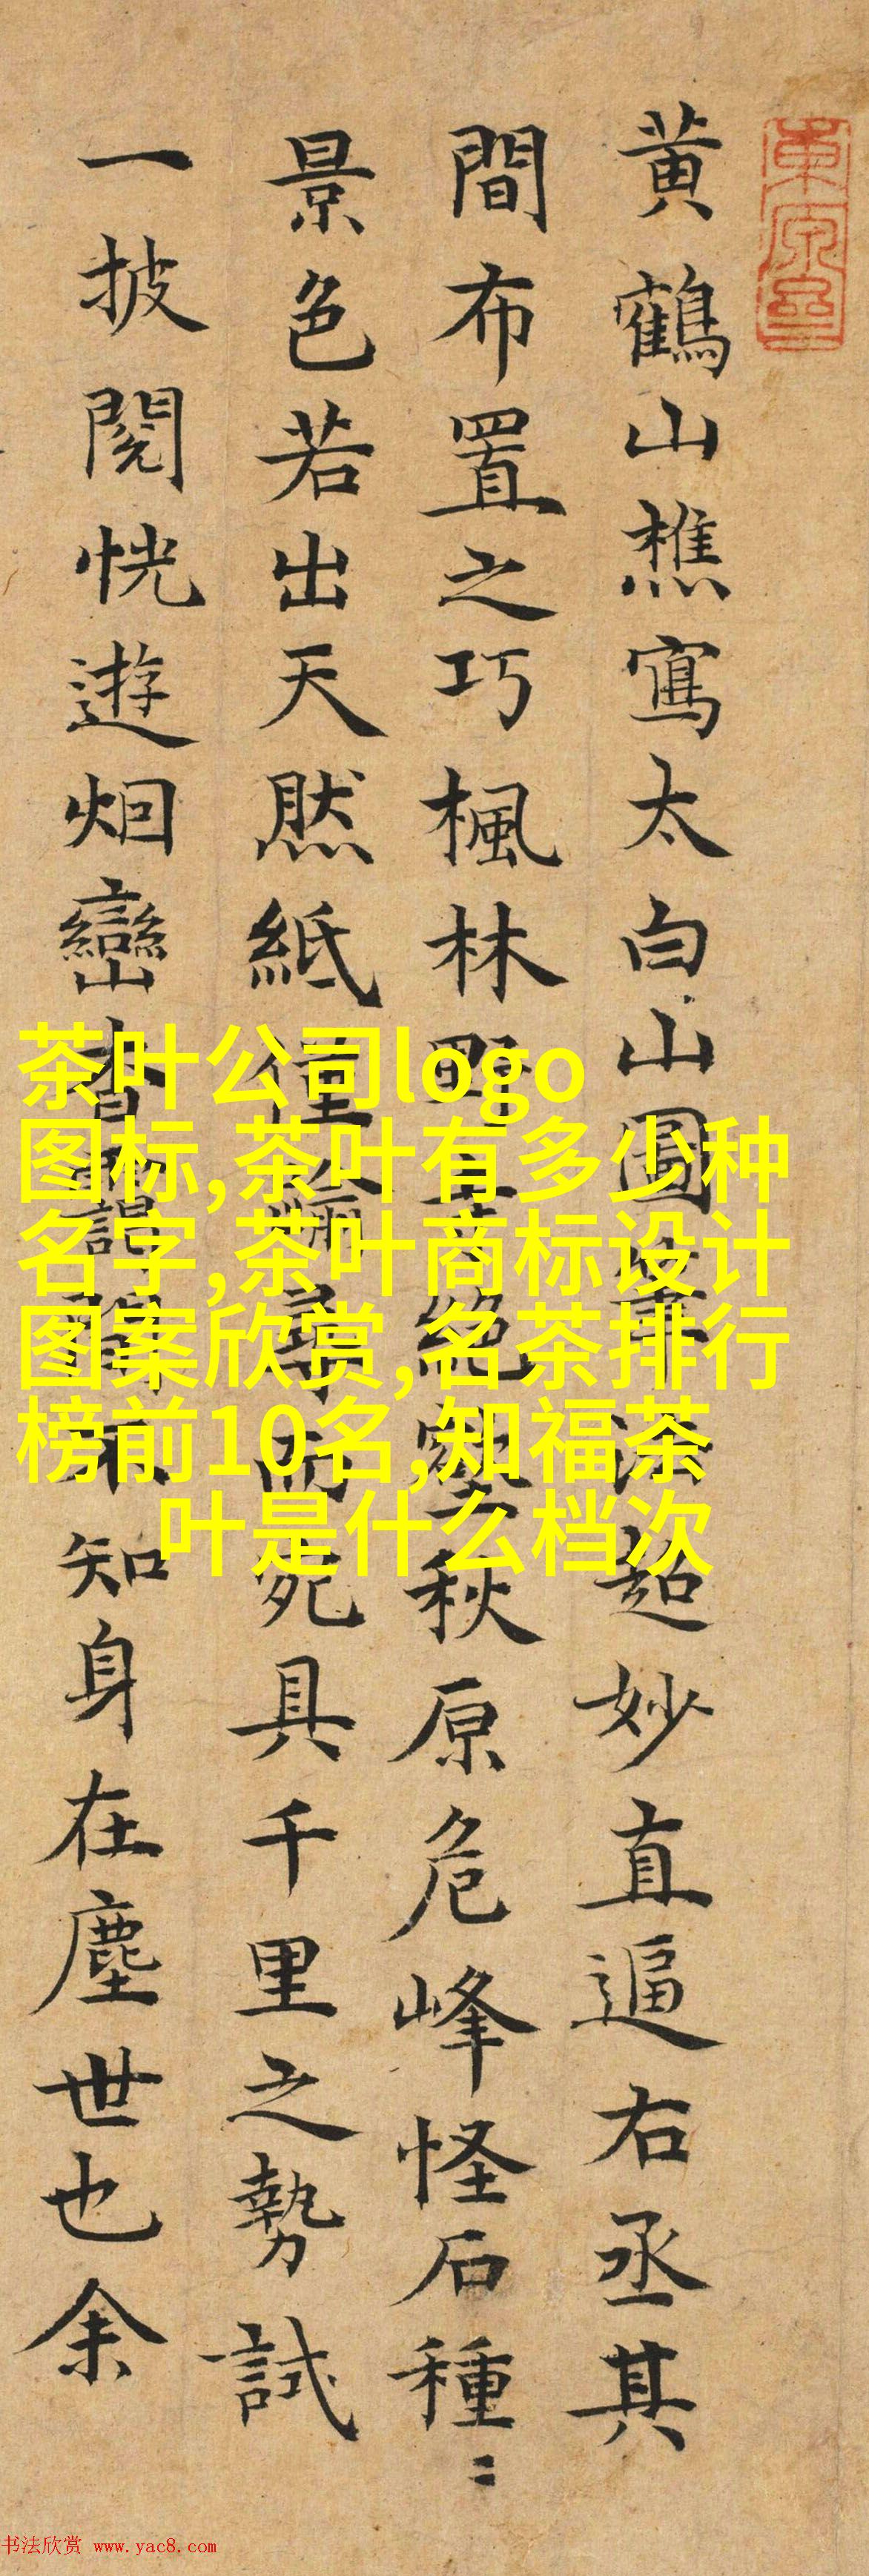 黄鶴山樵寫太白山圖筆法超妙直逼右丞其
間布置之巧楓林野絕壑秋原危峰怪石種〻
景色若出天然紙僅尋而宛具千里之勢試
一披閱恍遊烟巒杳靄間不知身在塵世也余
茶叶公司logo
图标,茶叶有多少种
名字,茶叶商标设计
图案欣赏,名茶排行
榜前10名,知福茶
叶是什么档次
书法欣赏 www.yac8.com